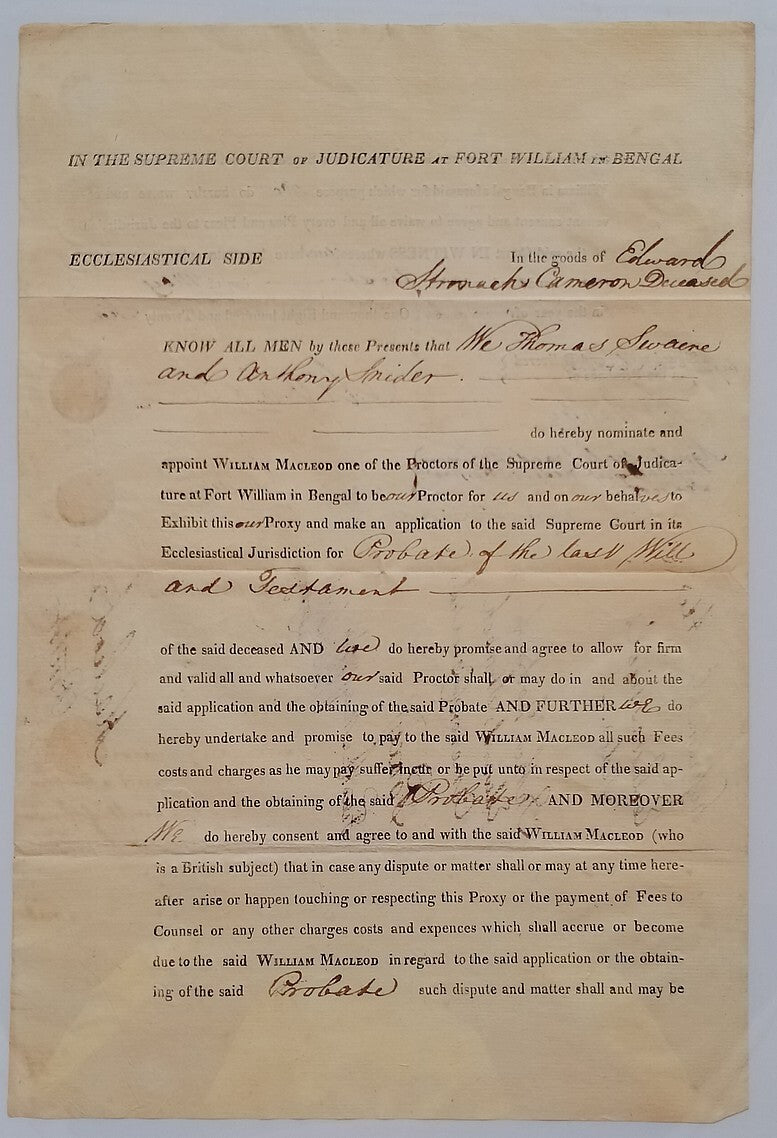 IN THE SUPREME COURT OF JUDICATURE AT FORT WILLIAM IN BENGAL
ECCLESIASTICAL SIDE In the goods of Edward
Stronachs Cameron Deceased
KNOW ALL MEN by these Presents that We Thomas Swaine
and Anthony Snider.
do hereby nominate and
appoint WILLIAM MACLEOD one of the Proctors of the Supreme Court of Judica-
ture at Fort William in Bengal to be our Proctor for us and on our behalves to
Exhibit this our Proxy and make an application to the said Supreme Court in its
Ecclesiastical Jurisdiction for Probate of the last Will
and Testament
of the said deceased AND we do hereby promise and agree to allow for firm
and valid all and whatsoever our said Proctor shall or may do in and about the
said application and the obtaining of the said Probate AND FURTHER we do
hereby undertake and promise to pay to the said WILLIAM MACLEOD all such Fees
costs and charges as he may pay suffer incur or be put unto in respect of the said ap-
plication and the obtaining of the said Probate AND MOREOVER
We do hereby consent and agree to and with the said WILLIAM MACLEOD (who
is a British subject) that in case any dispute or matter shall or may at any time here-
after arise or happen touching or respecting this Proxy or the payment of Fees to
Counsel or any other charges costs and expences which shall accrue or become
due to the said WILLIAM MACLEOD in regard to the said application or the obtain-
ing of the said Probate such dispute and matter shall and may be